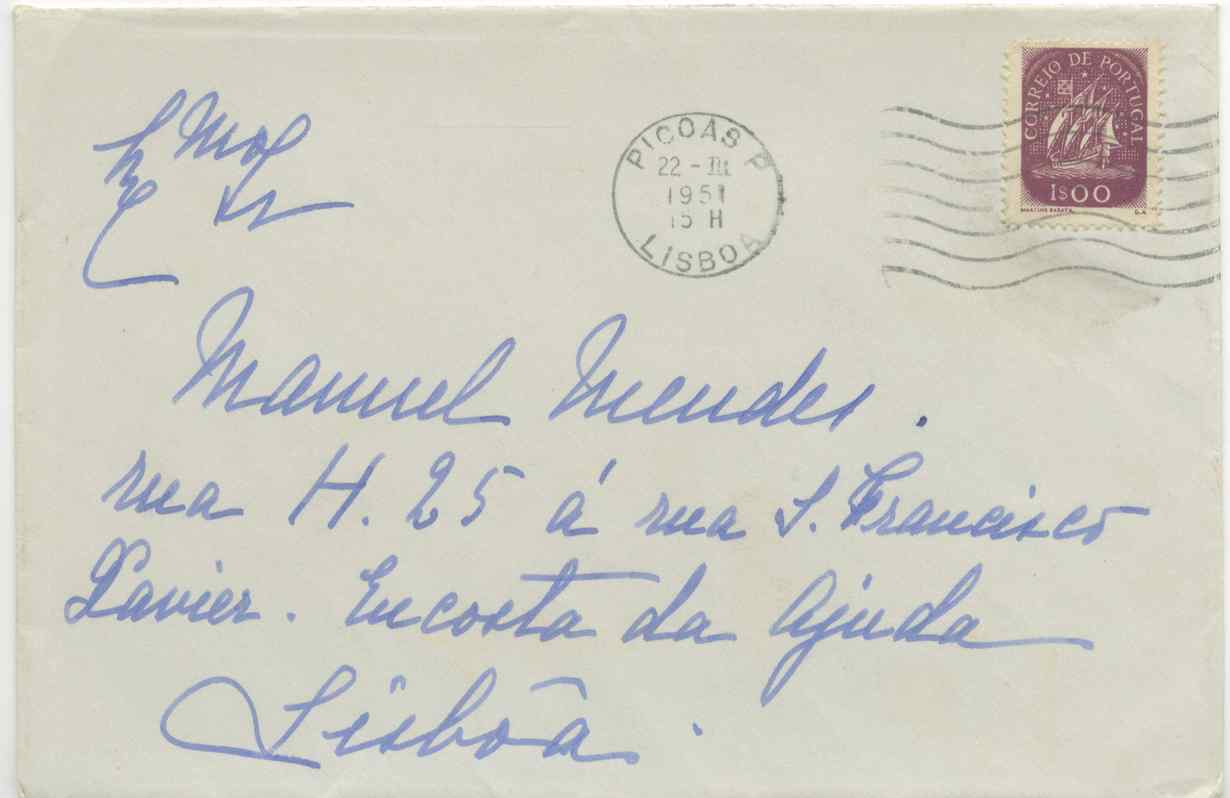 Exmo
Sr
Manuel Mendes.
rua H. 25 á rua S. Francisco
Xavier. Encosta da Ajuda
Lisbôa.
PICOAS P
22 - III
1951
15 H
LISBOA
CORREIO DE PORTUGAL
1$00
MARTINS BARATA